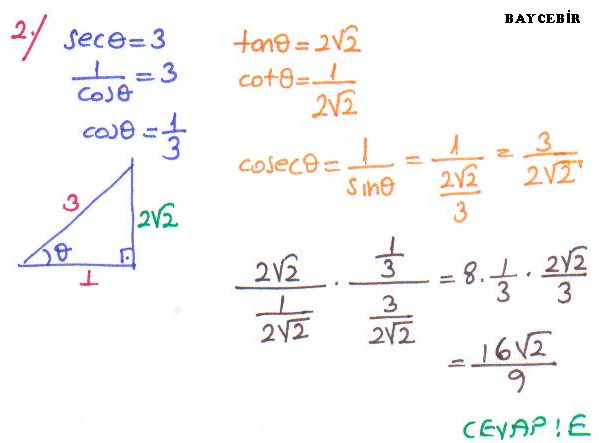 BAYCEBİR
2./
secθ = 3
1/cosθ = 3
cosθ = 1/3
3
2√2
θ
1
tanθ = 2√2
cotθ = 1/2√2
cosecθ = 1/sinθ = 1/(2√2/3) = 3/2√2
2√2/(1/2√2) · (1/3)/(3/2√2) = 8 · 1/3 · 2√2/3
= 16√2/9
CEVAP : E